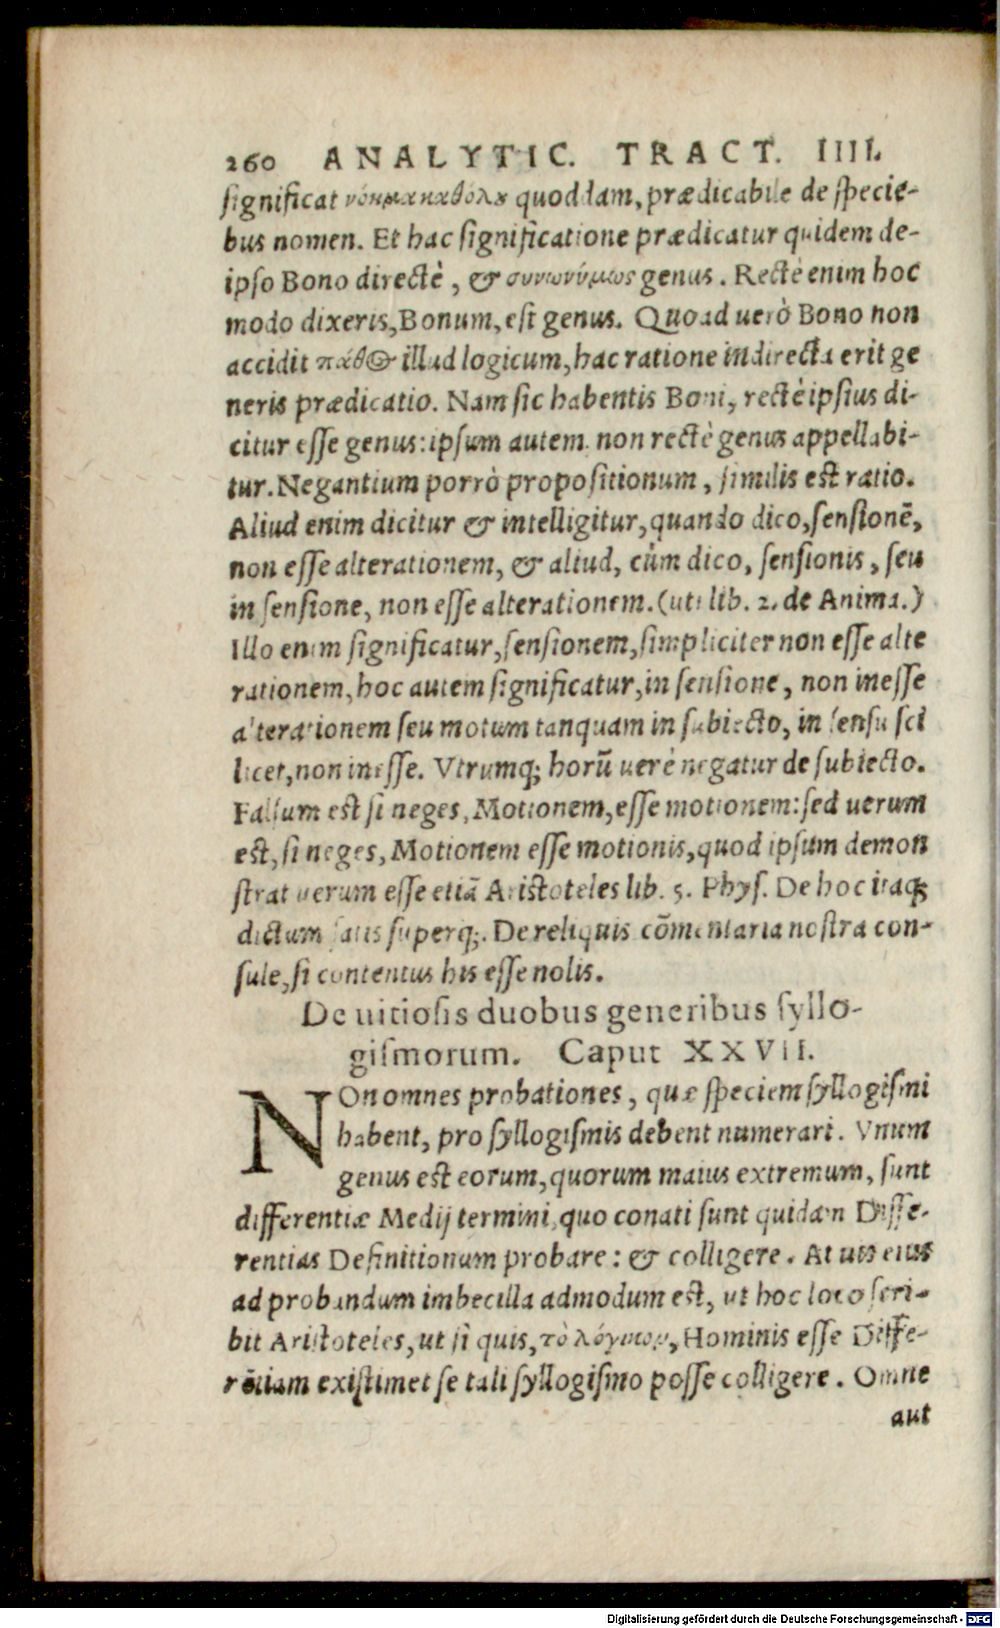 260 ANALYTIC. TRACT. IIII.
significat νόημα καθόλου quoddam, prædicabile de specie-
bus nomen. Et hac significatione prædicatur quidem de-
ipso Bono directè, & συνωνύμως genus. Rectè enim hoc
modo dixeris, Bonum, est genus. Quoad uerò Bono non
accidit πάθος illud logicum, hac ratione indirecta erit ge
neris prædicatio. Nam sic habentis Boni, rectè ipsius di-
citur esse genus: ipsum autem non rectè genus appellabi-
tur. Negantium porrò propositionum, similis est ratio.
Aliud enim dicitur & intelligitur, quando dico, sensionē,
non esse alterationem, & aliud, cùm dico, sensionis, seu
in sensione, non esse alterationem. (uti lib. 2. de Anima.)
Illo enim significatur, sensionem, simpliciter non esse alte
rationem, hoc autem significatur, in sensione, non inesse
alterationem seu motum tanquam in subiecto, in sensu sci
licet, non inesse. Vtrumq; horū uerè negatur de subiecto.
Falsum est si neges, Motionem, esse motionem: sed uerum
est, si neges, Motionem esse motionis, quod ipsum demon
strat uerum esse etiā Aristoteles lib. 5. Phys. De hoc itaq;
dictum satis superq;. De reliquis cōmentaria nostra con-
sule, si contentus his esse nolis.
De uitiosis duobus generibus syllo-
gismorum. Caput XXVII.
NOn omnes probationes, quæ speciem syllogismi
habent, pro syllogismis debent numerari. Vnum
genus est eorum, quorum maius extremum, sunt
differentiæ Medij termini, quo conati sunt quidam Diffe-
rentias Definitionum probare: & colligere. At uis eius
ad probandum imbecilla admodum est, ut hoc loco scri-
bit Aristoteles, ut si quis, τὸ λόγιμον, Hominis esse Diffe-
rētiam existimet se tali syllogismo posse colligere. Omne
aut
Digitalisierung gefördert durch die Deutsche Forschungsgemeinschaft - DFG